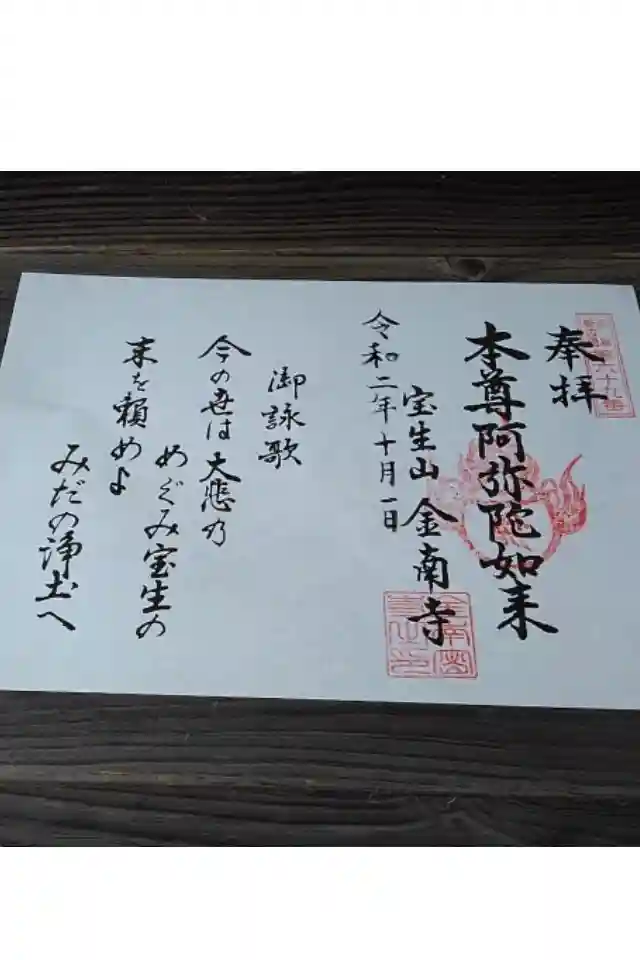 奉拝
本尊阿弥陀如来
宝生山 金南寺
令和二年十月一日
御詠歌
今の世は大悲乃
めぐみ宝生の
末を頼めよ
みだの浄土へ